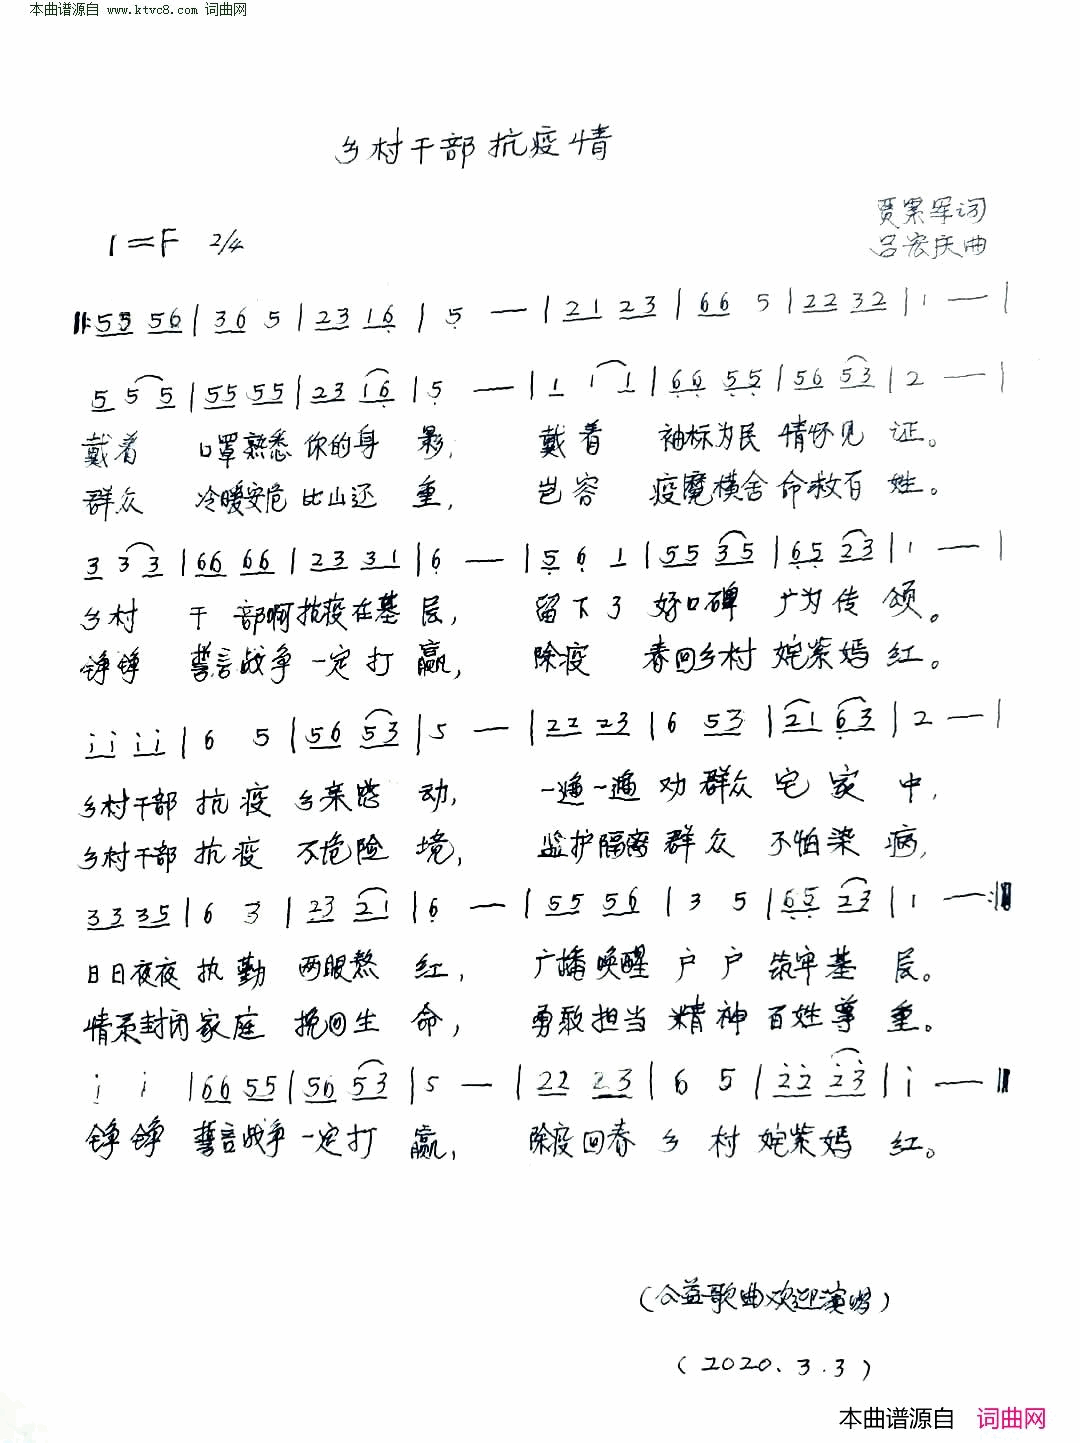 本曲谱源自 www.ktvc8.com 词曲网
乡村干部抗疫情
贾累军词
1=F 2/4
吕宏庆曲
‖:55 56|36 5|23 16|5 —|21 23|66 5|22 32|1 —|
5 5 5|55 55|23 16|5 —|1 1 1|66 55|56 53|2 —|
戴着 口罩熟悉你的身 影, 戴着 袖标为民 情怀见 证。
群众 冷暖安危比山还 重, 岂容 疫魔横舍命救百 姓。
3 3 3|66 66|23 31|6 —|5 6 1|55 35|65 23|1 —|
乡村 干 部啊抗疫在基 层, 留下了 好口碑 广为传 颂。
铮铮 誓言战争一定打 赢, 除疫 春回乡村 姹紫嫣 红。
ii ii|6 5|56 53|5 —|22 23|6 53|21 63|2 —|
乡村干部 抗疫 乡亲感 动, 一遍一遍 劝群众 宅家 中,
乡村干部 抗疫 不危险 境, 监护隔离 群众 不怕染 病,
33 35|6 3|23 21|6 —|55 56|3 5|65 23|1 —:‖
日日夜夜 执勤 两眼熬 红, 广播唤醒 户户 筑牢基 层。
情系封闭 家庭 挽回生 命, 勇敢担当 精神 百姓尊 重。
i i|66 55|56 53|5 —|22 23|6 5|22 23|i —‖
铮铮 誓言战争一定打 赢, 除疫回春 乡村 姹紫嫣 红。
(公益歌曲欢迎演唱)
(2020.3.3)
本曲谱源自 词曲网